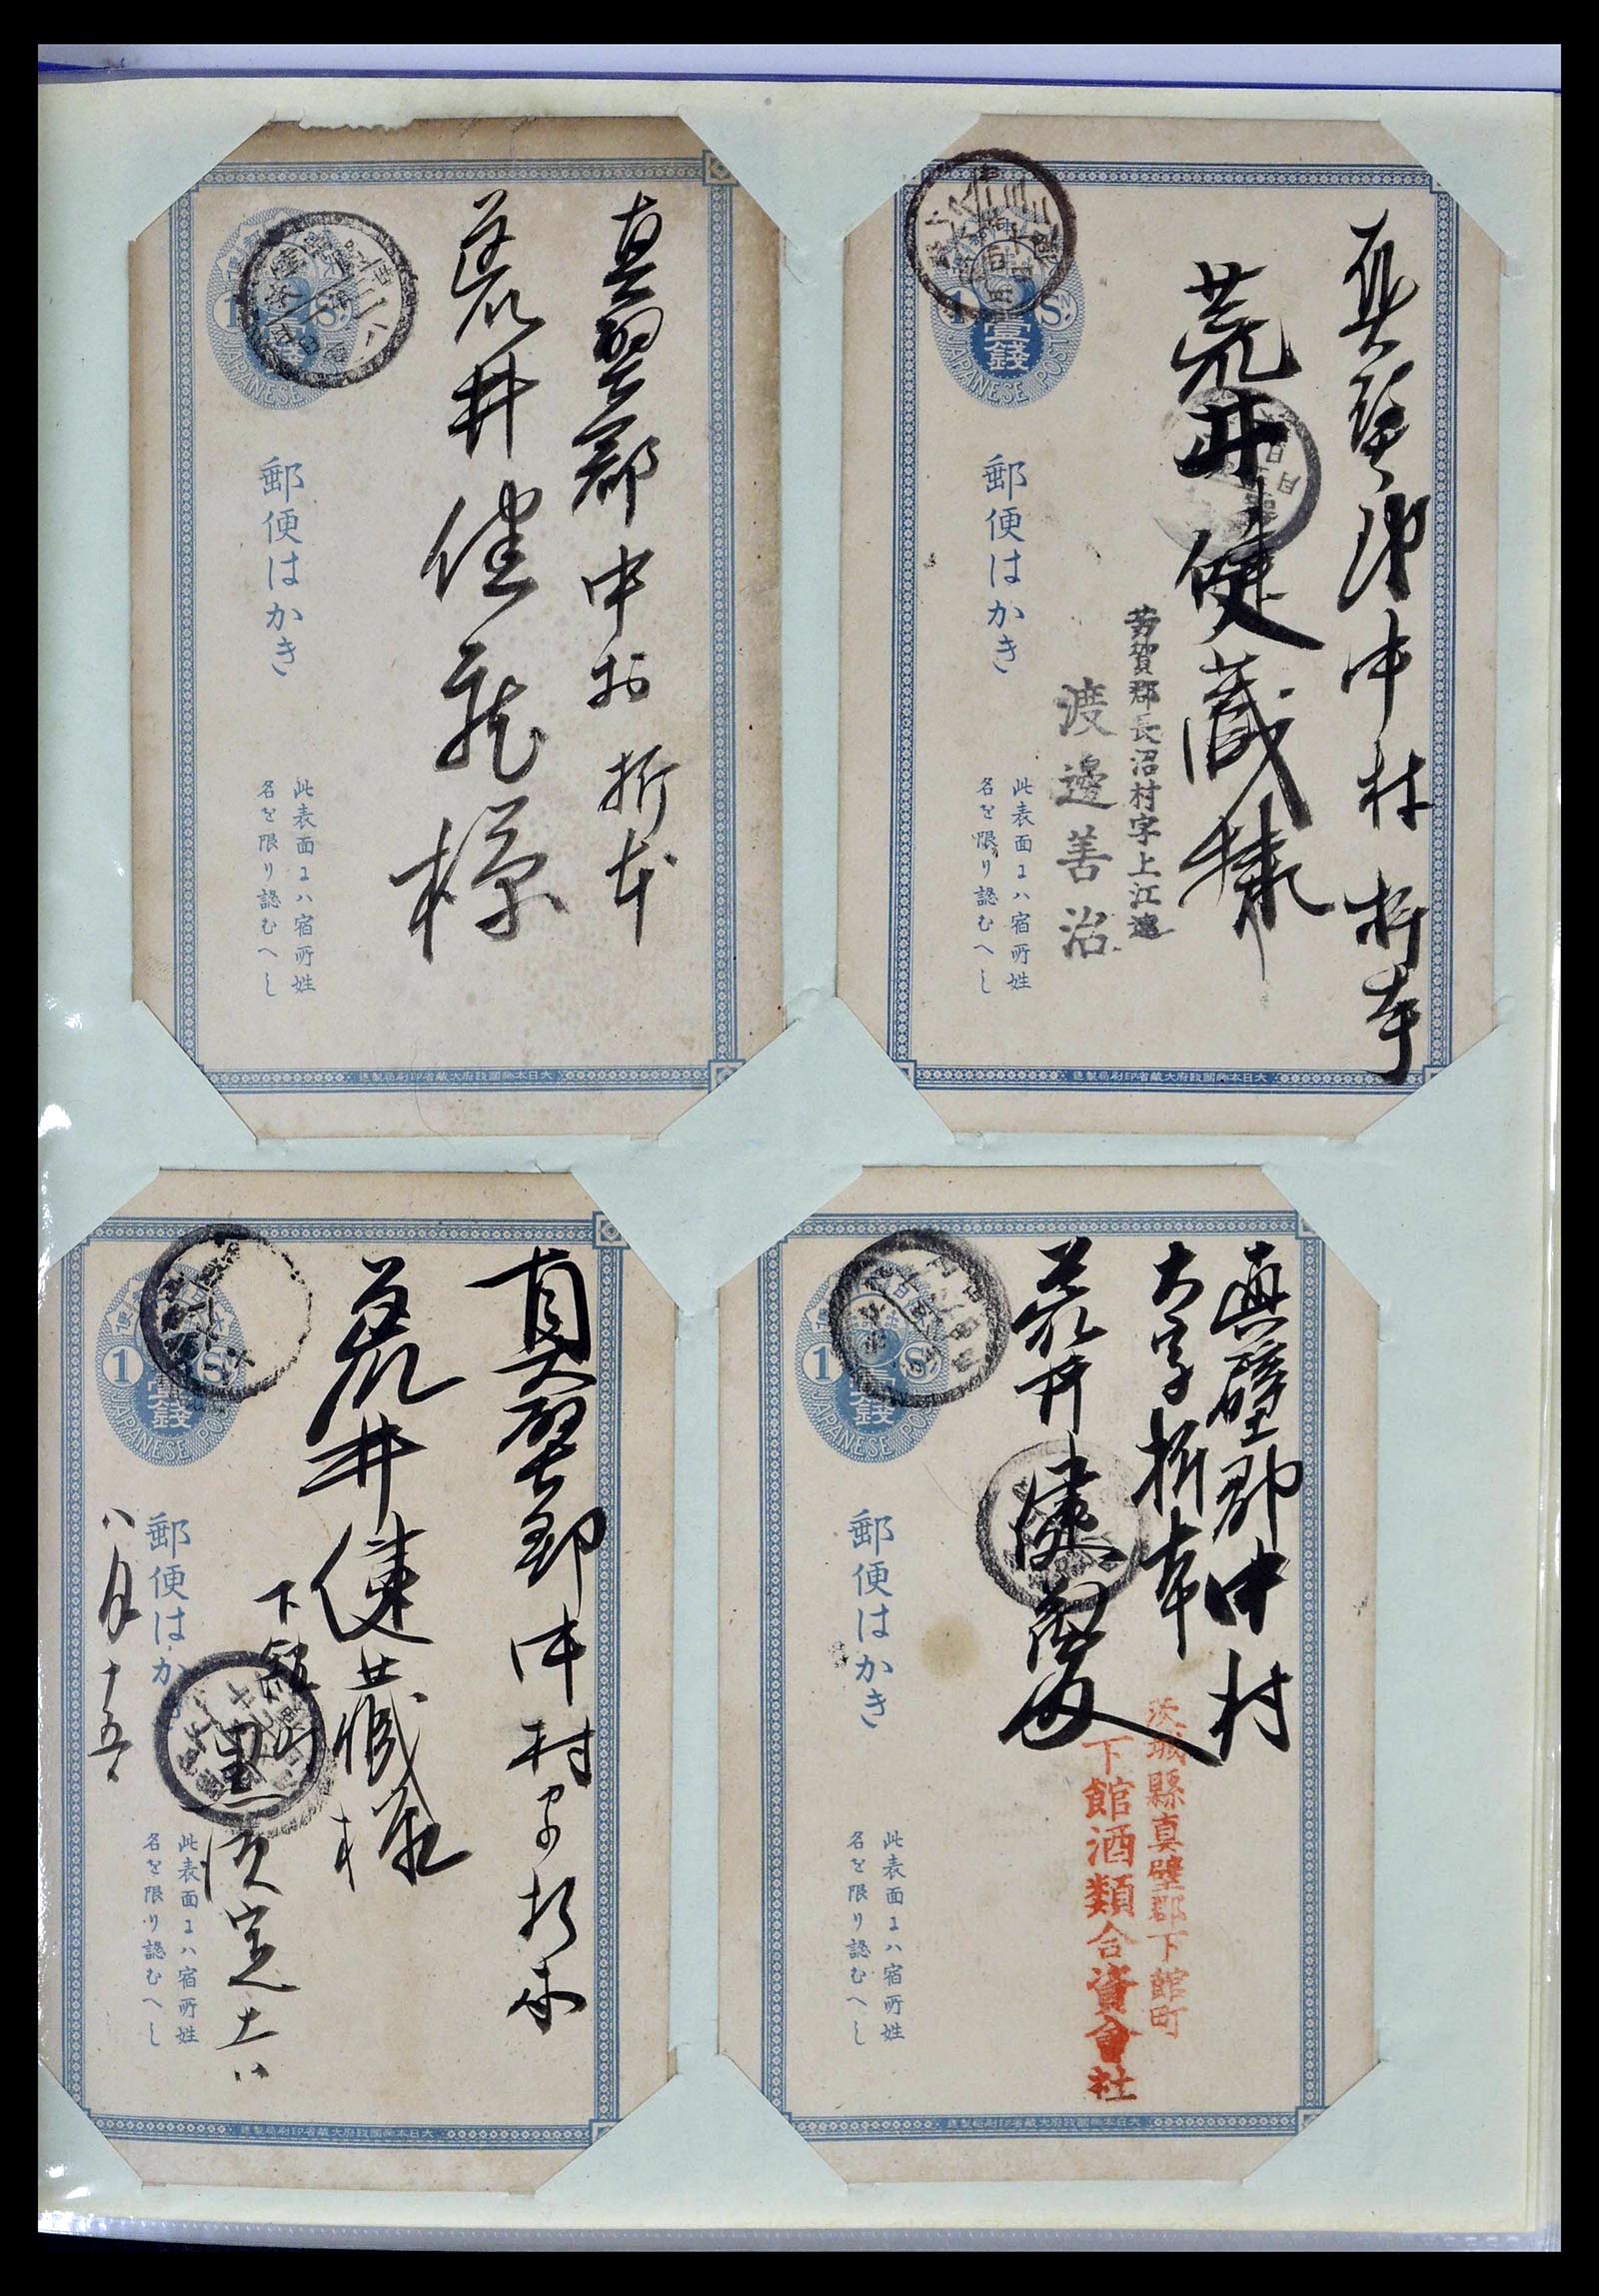 真壁郡中村折本
荒井健蔵様
1 Sn
壹錢
JAPANESE POST
郵便はかき
此表面ニハ宿所姓
名を限り認むへし
大日本帝國政府大藏省印刷局製造
真壁郡中村折本
荒井健蔵様
芳賀郡長沼村字上江連
渡邊善治
1 Sn
壹錢
JAPANESE POST
郵便はかき
此表面ニハ宿所姓
名を限り認むへし
大日本帝國政府大藏省印刷局製造
真壁郡中村字折本
荒井健蔵様
下館町
黒須定吉
八月十五
1 Sn
壹錢
JAPANESE POST
郵便はか
此表面ニハ宿所姓
名を限り認むへし
大日本帝國政府大藏省印刷局製造
真壁郡中村
大字折本
荒井健蔵
茨城縣真壁郡下館町
下館酒類合資會社
1 Sn
壹錢
JAPANESE POST
郵便はかき
此表面ニハ宿所姓
名を限り認むへし
大日本帝國政府大藏省印刷局製造